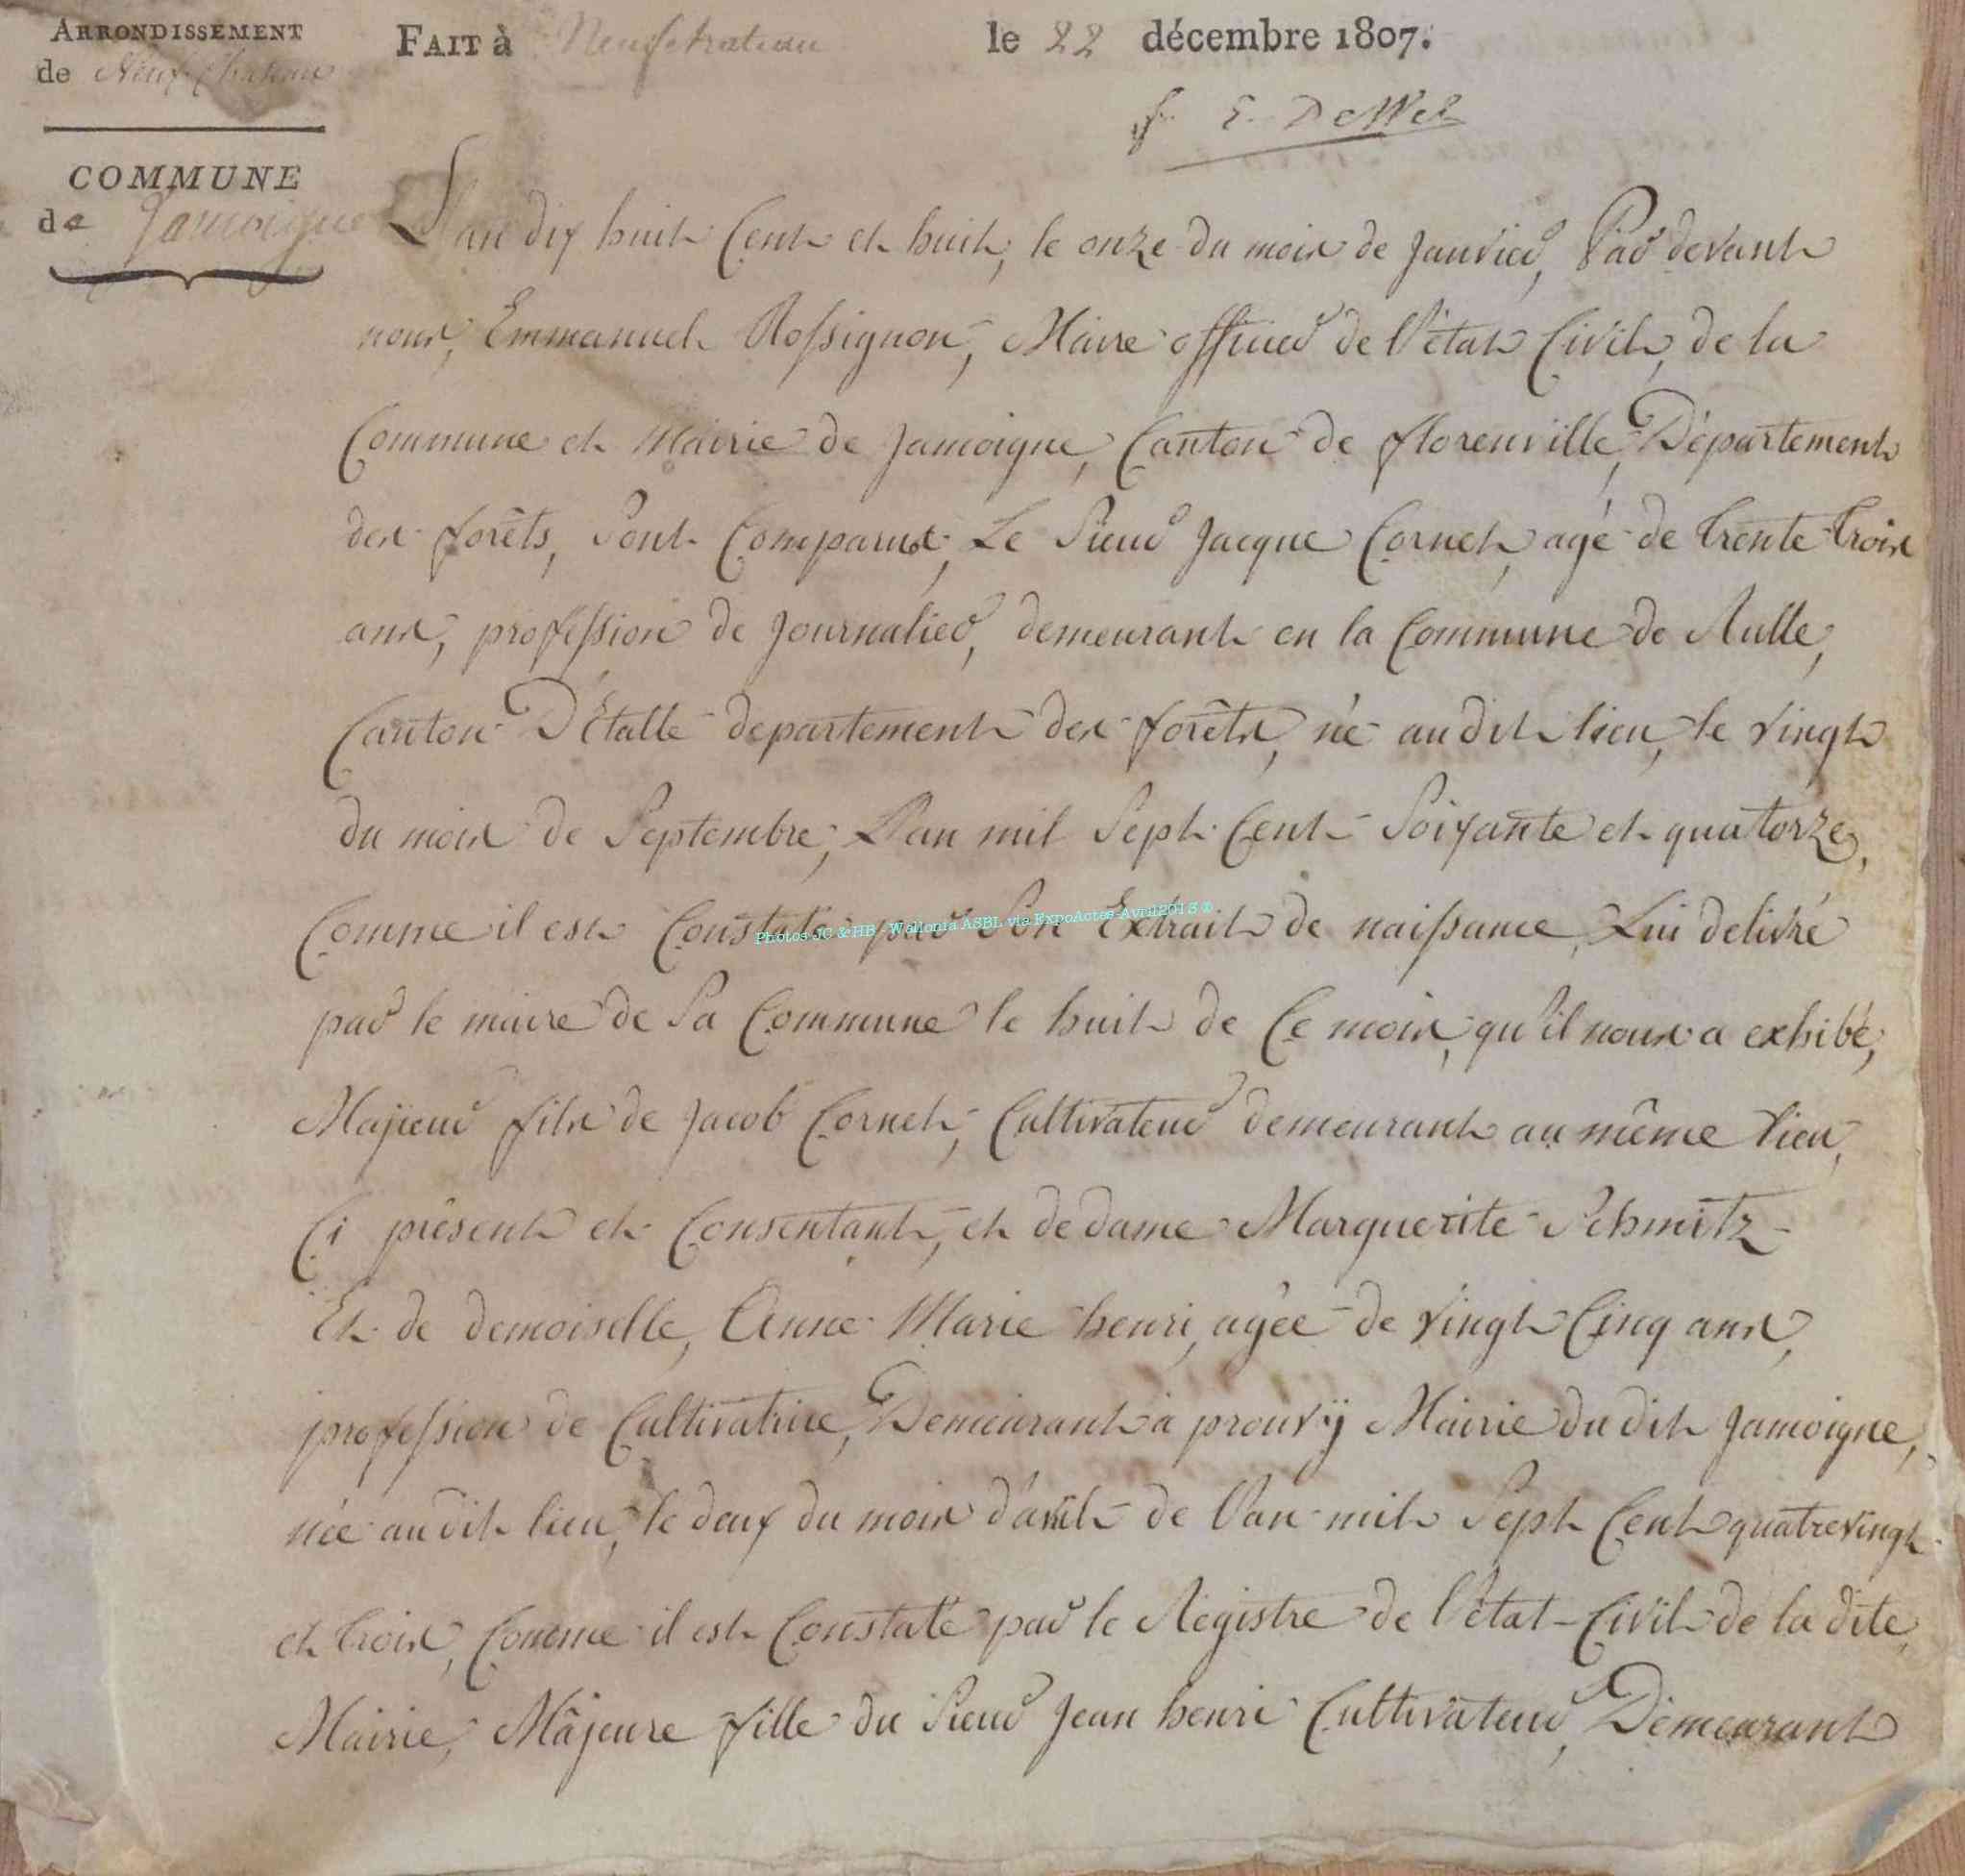 ARRONDISSEMENT
de Neufchateau
FAIT à Neufchateau le 22 décembre 1807.
COMMUNE
de Jamoigne
L'an dix huit Cent et huit, le onze du mois de Janvier, Par devant
nous, Emmanuel Rossignon, Maire officier de l'état Civil, de la
Commune et Mairie de Jamoigne, Canton de florenville, Département
des forêts, Sont Comparus, Le Sieur Jacque Cornet, agé de trente trois
ans, profession de Journalier, demeurant en la Commune de Rulle,
Canton D'Etalle departement des forêts, né au dit lieu, le vingt
du mois de Septembre, L'an mil Sept Cent Soixante et quatorze,
Comme il est Constaté par Son Extrait de naissance, Lui delivré
Photos JC & HB - Wallonia ASBL via ExpoActes-Avril2013 ©
par le maire de Sa Commune le huit de Ce mois, qu'il nous a exhibé,
Majeur fils de Jacob Cornet, Cultivateur demeurant au même lieu,
Ci présent et Consentant, et de dame Marguerite Schmitz
Et de demoiselle, Anne Marie henri, agée de vingt Cinq ans,
profession de Cultivatrice, Demeurant à prouvÿ Mairie du dit Jamoigne,
née au dit lieu, le deux du mois d'avril de l'an mil Sept Cent quatre vingt
et trois, Comme il est Constaté par le Régistre de l'état-Civil de la dite,
Mairie, Mâjeure fille du Sieur Jean henri Cultivateur, Demeurant